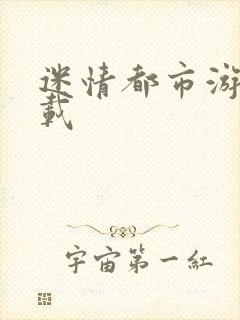 迷情都市游
載
宇宙第一紅